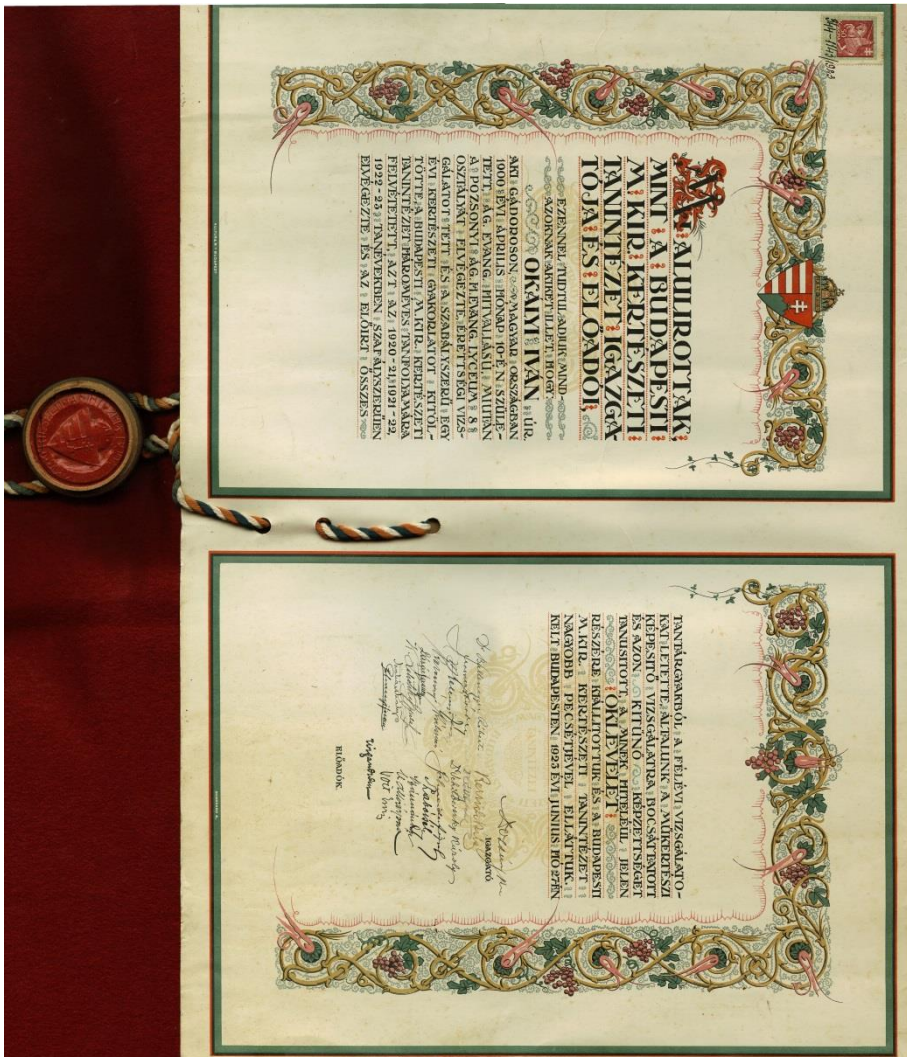 311-1140/1923
ALULIROTTAK,
MINT A BUDAPESTI
M. KIR. KERTÉSZETI
TANINTÉZET IGAZGA-
TÓJA ÉS ELŐADÓI,
EZENNEL TUDTUL ADJUK MIND-
AZOKNAK AKIKET ILLET, HOGY
OKÁLYI IVÁN ÚR,
AKI GÁDOROSON, MAGYARORSZÁGBAN
1900 ÉVI ÁPRILIS HÓNAP 10-ÉN SZÜLE-
TETT, ÁG. EVANG. HITVALLÁSÚ, MIUTÁN
A POZSONYI ÁG. H. EVANG. LYCEUM 8
OSZTÁLYÁT ELVÉGEZTE, ÉRETTSÉGI VIZS-
GÁLATOT TETT ÉS A SZABÁLYSZERŰ EGY
ÉVI KERTÉSZETI GYAKORLATOT KITÖL-
TÖTTE, A BUDAPESTI M. KIR. KERTÉSZETI
TANINTÉZET HÁROMÉVES TANFOLYAMÁRA
FELVÉTETETT, AZT AZ 1920-21, 1921-22,
1922-23 TANÉVEKBEN SZABÁLYSZERŰEN
ELVÉGEZTE ÉS AZ ELŐIRT ÖSSZES
TANTÁRGYAKBÓL A FÉLÉVI VIZSGÁLATO-
KAT LETETTE, ÁLTALUNK A MŰKERTÉSZI
KÉPESITŐ VIZSGÁLATRA BOCSÁTTATOTT
ÉS AZON KITÜNŐ KÉPZETTSÉGET
TANUSITOTT, A MINEK HITELÉÜL JELEN
OKLEVELET
RÉSZÉRE KIÁLLITOTTUK ÉS A BUDAPESTI
M. KIR. KERTÉSZETI TANINTÉZET
NAGYOBB PECSÉTJÉVEL ELLÁTTUK.
KELT BUDAPESTEN, 1923 ÉVI JUNIUS HÓ 27-ÉN
IGAZGATÓ
ELŐADÓK.